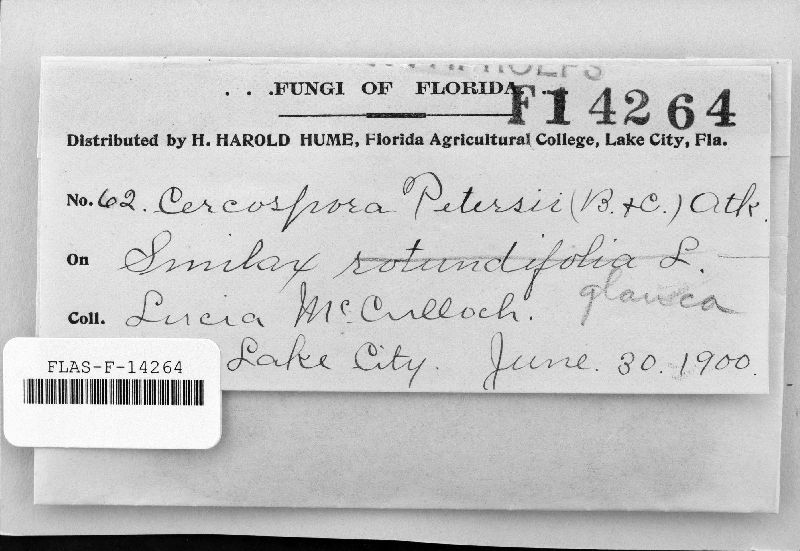 . . .FUNGI OF FLORIDA. . .
F14264
Distributed by H. HAROLD HUME, Florida Agricultural College, Lake City, Fla.
No. 62. Cercospora Petersii (B. & C.) Atk.
On Smilax rotundifolia L.
glauca
Coll. Lucia McCulloch.
Lake City. June. 30. 1900.
FLAS-F-14264